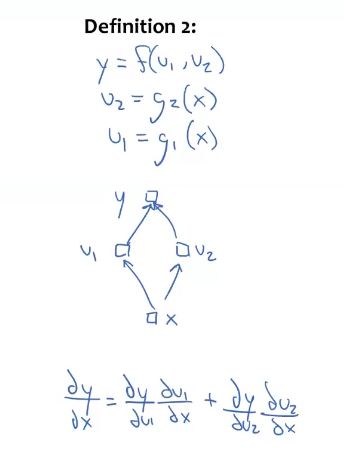 Definition 2:
y = f(u₁, u₂)
u₂ = g₂(x)
u₁ = g₁(x)
y
u₁ u₂
x
∂y/∂x = ∂y/∂u₁ ∂u₁/∂x + ∂y/∂u₂ ∂u₂/∂x